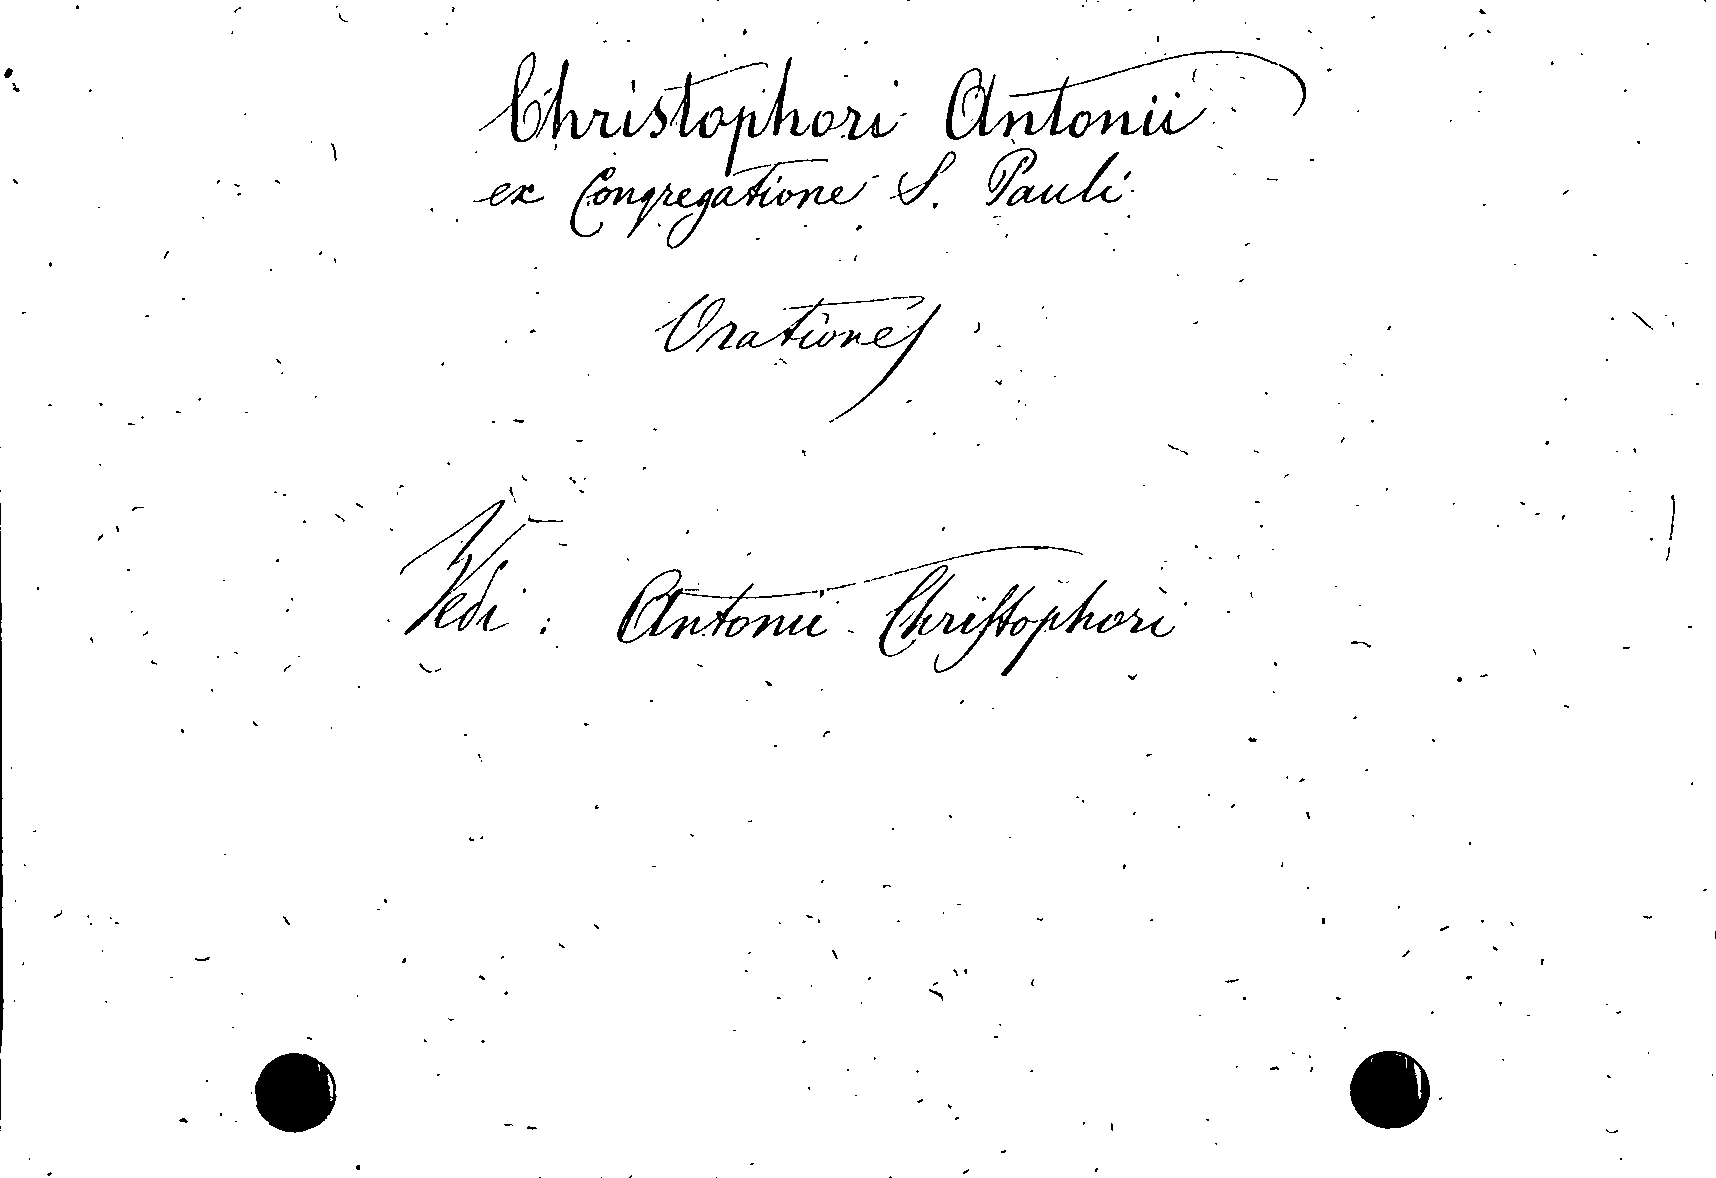 Christophori Antonii
ex Congregatione S. Pauli
Orationes
Vedi : Antonii Christophori